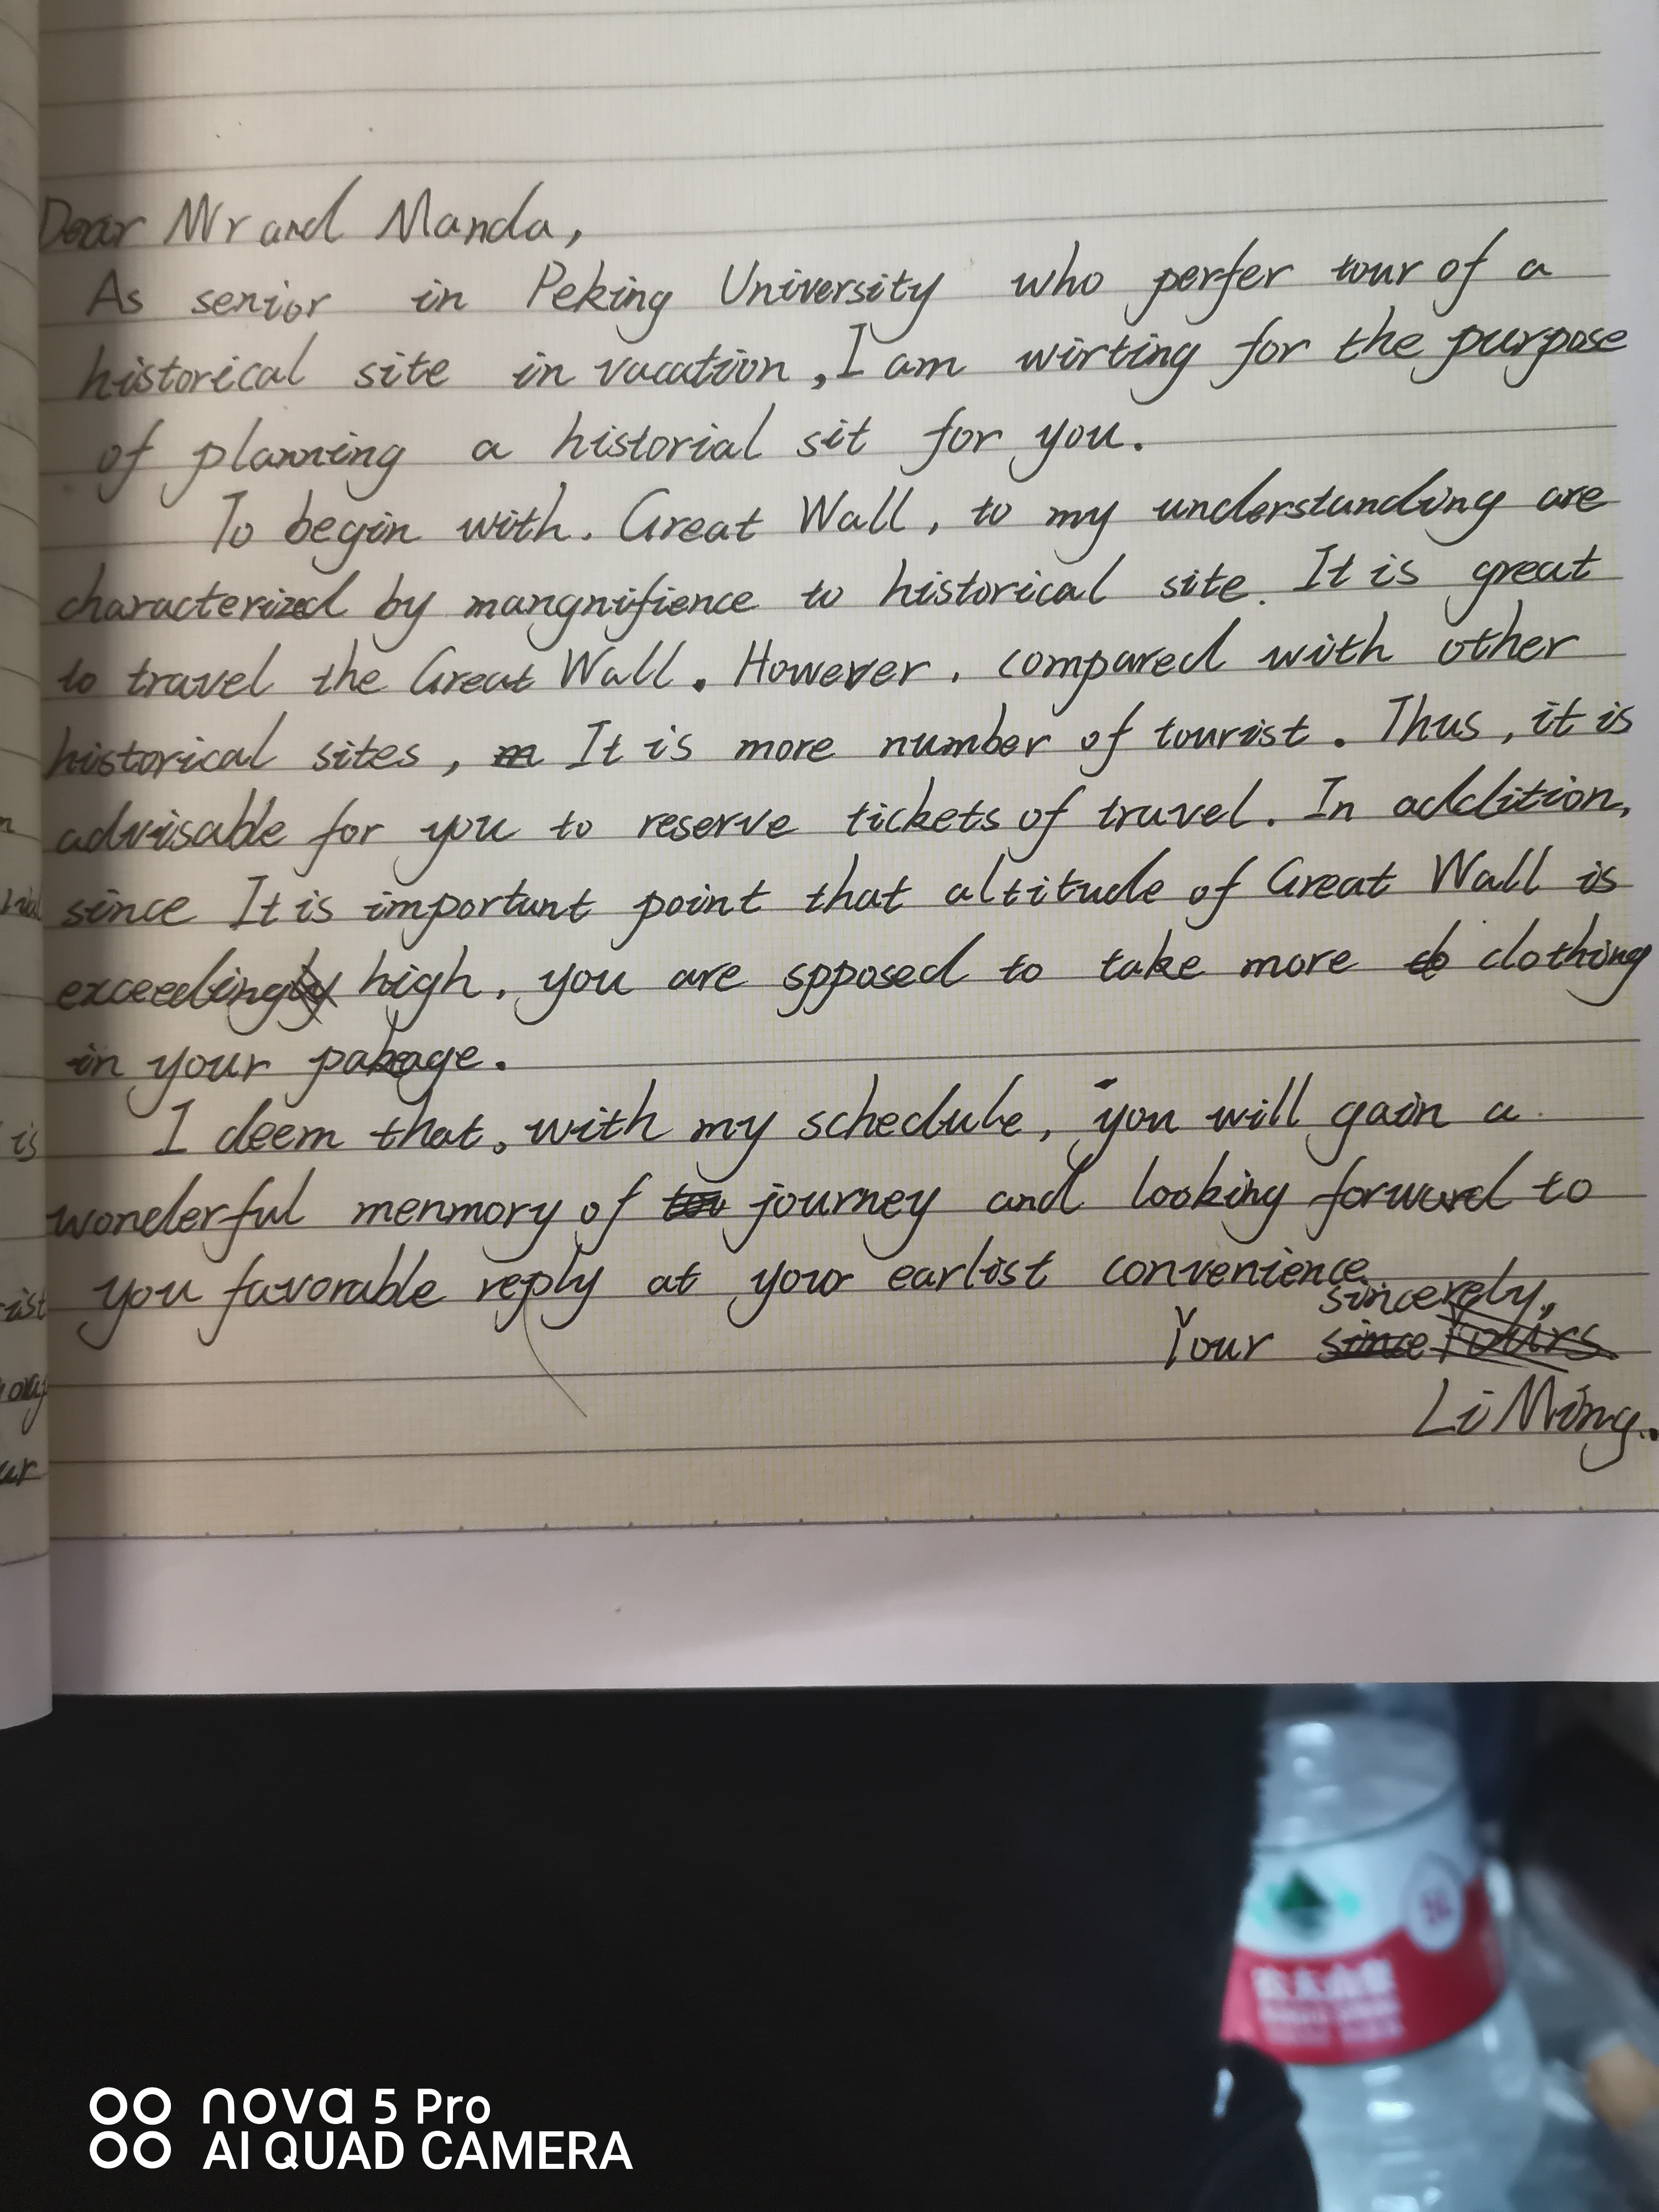 Dear Mr and Manda,
As senior in Peking University who perfer tour of a
historical site in vacation, I am wirting for the purpose
of planning a historial sit for you.
To begin with. Great Wall, to my understanding are
characterized by mangnifience to historical site. It is great
to travel the Great Wall. However, compared with other
historical sites, It is more number of tourist. Thus, it is
advisable for you to reserve tickets of travel. In addition,
since It is important point that altitude of Great Wall is
exceeding high, you are spposed to take more clothing
in your pakage.
I deem that, with my schedule, you will gain a
wonderful menmory of journey and looking forward to
you favorable reply at your earlist convenience
sincerely,
Your
Li Ming.
n
is
ist
ur
nova 5 Pro
AI QUAD CAMERA